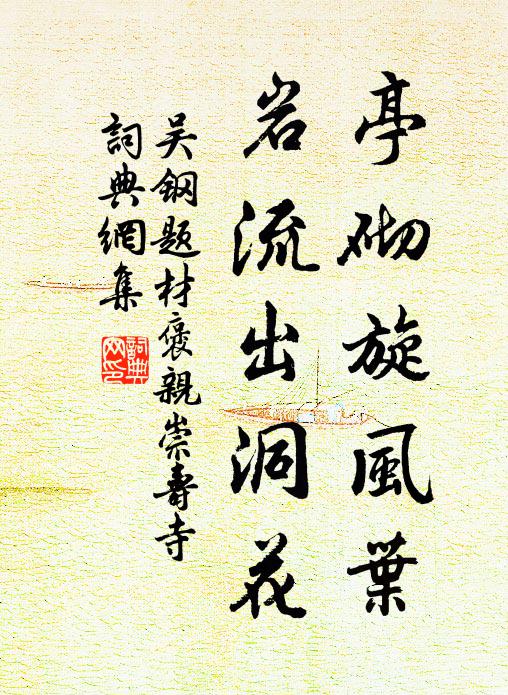 亭砌旋風葉
岩流出洞花
吴鋼题材褒親崇壽寺
詞典網集
詞典网印